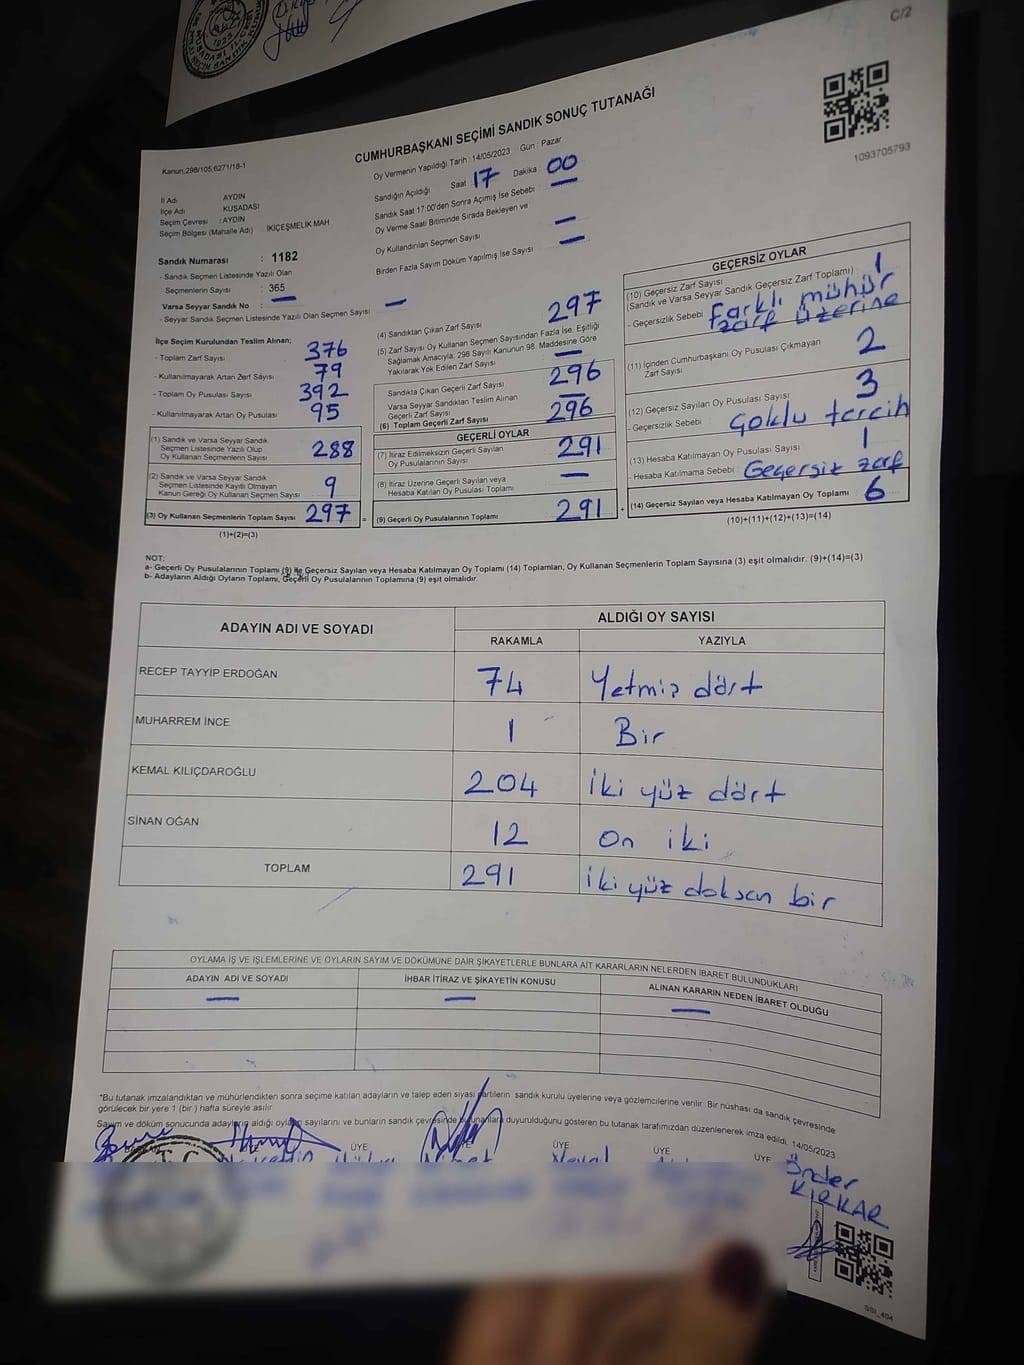 C/2
CUMHURBAŞKANI SEÇİMİ SANDIK SONUÇ TUTANAĞI
1093705793
Kanun,298/105;6271/18-1
Oy Vermenin Yapıldığı Tarih : 14/05/2023 Gün : Pazar
Sandığın Açıldığı Saat 17 Dakika : 00
Sandık Saat 17:00'den Sonra Açımış İse Sebebi —
Oy Verme Saati Bitiminde Sırada Bekleyen ve
Oy Kullandırılan Seçmen Sayısı —
Birden Fazla Sayım Döküm Yapılmış İse Sayısı —
İl Adı : AYDIN
İlçe Adı : KUŞADASI
Seçim Çevresi : AYDIN
Seçim Bölgesi (Mahalle Adı) : İKİÇEŞMELİK MAH.
Sandık Numarası : 1182
- Sandık Seçmen Listesinde Yazılı Olan
Seçmenlerin Sayısı : 365
Varsa Seyyar Sandık No : —
- Seyyar Sandık Seçmen Listesinde Yazılı Olan Seçmen Sayısı : —
İlçe Seçim Kurulundan Teslim Alınan;
- Toplam Zarf Sayısı 376
- Kullanılmayarak Artan Zarf Sayısı 79
- Toplam Oy Pusulası Sayısı 392
- Kullanılmayarak Artan Oy Pusulası 95
(1) Sandık ve Varsa Seyyar Sandık
Seçmen Listesinde Yazılı Olup
Oy Kullanan Seçmenlerin Sayısı 288
(2) Sandık ve Varsa Seyyar Sandık
Seçmen Listesinde Kayıtlı Olmayan
Kanun Gereği Oy Kullanan Seçmen Sayısı 9
(3) Oy Kullanan Seçmenlerin Toplam Sayısı 297 =
(1)+(2)=(3)
(4) Sandıktan Çıkan Zarf Sayısı 297
(5) Zarf Sayısı Oy Kullanan Seçmen Sayısından Fazla İse, Eşitliği
Sağlamak Amacıyla, 298 Sayılı Kanunun 98. Maddesine Göre
Yakılarak Yok Edilen Zarf Sayısı —
Sandıkta Çıkan Geçerli Zarf Sayısı 296
Varsa Seyyar Sandıktan Teslim Alınan
Geçerli Zarf Sayısı —
(6) Toplam Geçerli Zarf Sayısı 296
GEÇERLİ OYLAR
(7) İtiraz Edilmeksizin Geçerli Sayılan
Oy Pusulalarının Sayısı 291
(8) İtiraz Üzerine Geçerli Sayılan veya
Hesaba Katılan Oy Pusulası Toplamı —
(9) Geçerli Oy Pusulalarının Toplamı 291 +
GEÇERSİZ OYLAR
(10) Geçersiz Zarf Sayısı 1
(Sandık ve Varsa Seyyar Sandık Geçersiz Zarf Toplamı)
- Geçersizlik Sebebi : farklı mühür
zarf üzerine
(11) İçinden Cumhurbaşkanı Oy Pusulası Çıkmayan
Zarf Sayısı 2
(12) Geçersiz Sayılan Oy Pusulası Sayısı 3
- Geçersizlik Sebebi : Çoklu tercih
(13) Hesaba Katılmayan Oy Pusulası Sayısı 1
- Hesaba Katılmama Sebebi : Geçersiz zarf
(14) Geçersiz Sayılan veya Hesaba Katılmayan Oy Toplamı 6
(10)+(11)+(12)+(13)=(14)
NOT:
a- Geçerli Oy Pusulalarının Toplamı (9) ile Geçersiz Sayılan veya Hesaba Katılmayan Oy Toplamı (14) Toplamları, Oy Kullanan Seçmenlerin Toplam Sayısına (3) eşit olmalıdır. (9)+(14)=(3)
b- Adayların Aldığı Oyların Toplamı, Geçerli Oy Pusulalarının Toplamına (9) eşit olmalıdır.
ADAYIN ADI VE SOYADI ALDIĞI OY SAYISI
RAKAMLA YAZIYLA
RECEP TAYYİP ERDOĞAN 74 Yetmiş dört
MUHARREM İNCE 1 Bir
KEMAL KILIÇDAROĞLU 204 iki yüz dört
SİNAN OĞAN 12 on iki
TOPLAM 291 iki yüz doksan bir
OYLAMA İŞ VE İŞLEMLERİNE VE OYLARIN SAYIM VE DÖKÜMÜNE DAİR ŞİKAYETLERLE BUNLARA AİT KARARLARIN NELERDEN İBARET BULUNDUKLARI
ADAYIN ADI VE SOYADI İHBAR İTİRAZ VE ŞİKAYETİN KONUSU ALINAN KARARIN NEDEN İBARET OLDUĞU
— — —
*Bu tutanak imzalandıktan ve mühürlendikten sonra seçime katılan adayların ve talep eden siyasi partilerin sandık kurulu üyelerine veya gözlemcilerine verilir. Bir nüshası da sandık çevresinde
görülecek bir yere 1 (bir ) hafta süreyle asılır.
Sayım ve döküm sonucunda adayların aldığı oyların sayılarını ve bunların sandık çevresinde bulunanlara duyurulduğunu gösteren bu tutanak tarafımızdan düzenlenerek imza edildi. 14/05/2023
ÜYE ÜYE ÜYE ÜYE ÜYE
Önder
KIRKAR
GGI_404